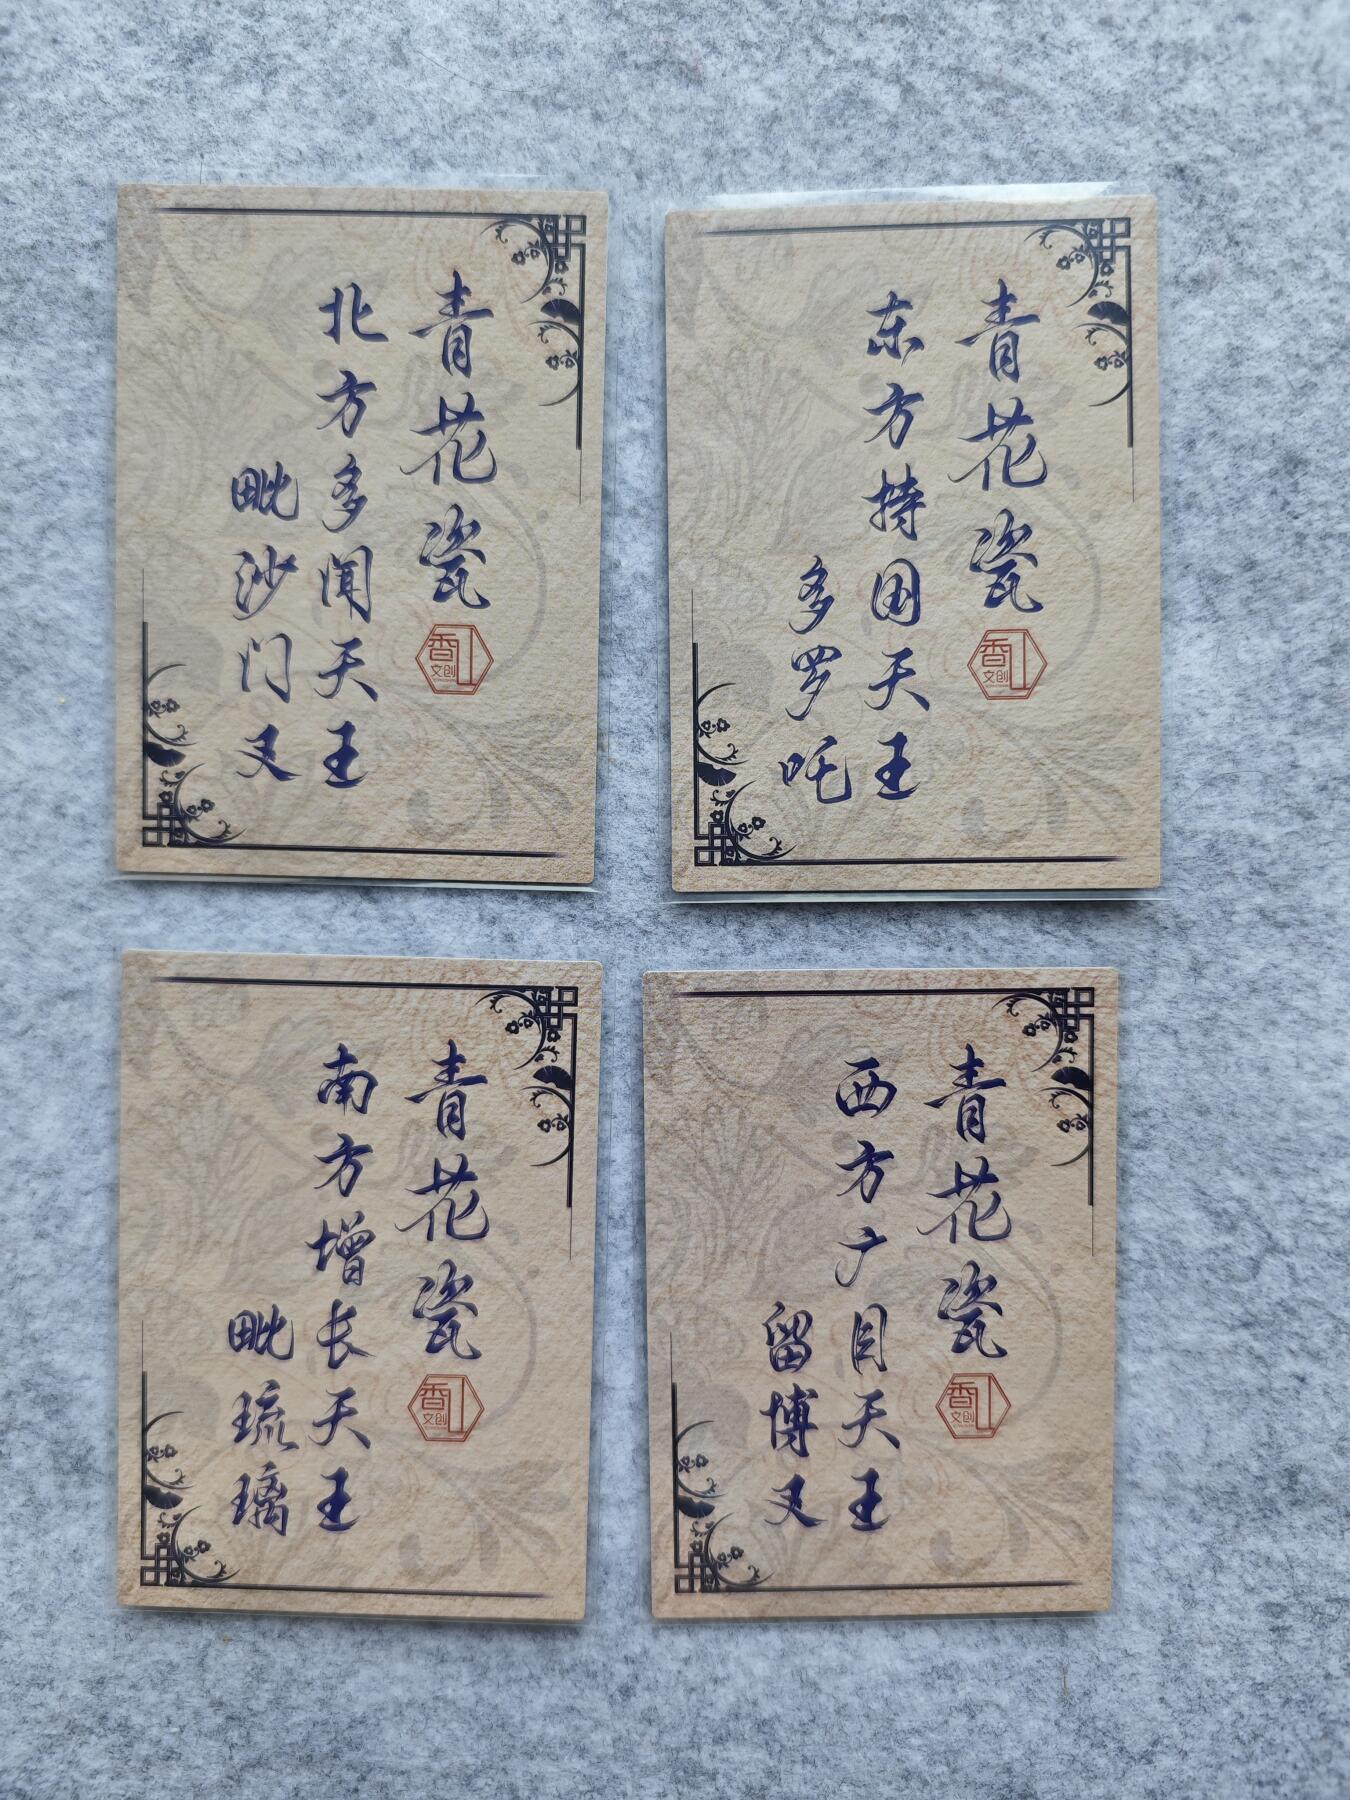 青花瓷
北方多闻天王
毗沙门叉
香
文创
青花瓷
东方持国天王
多罗吒
香
文创
青花瓷
南方增长天王
毗琉璃
香
文创
青花瓷
西方广目天王
留博叉
香
文创